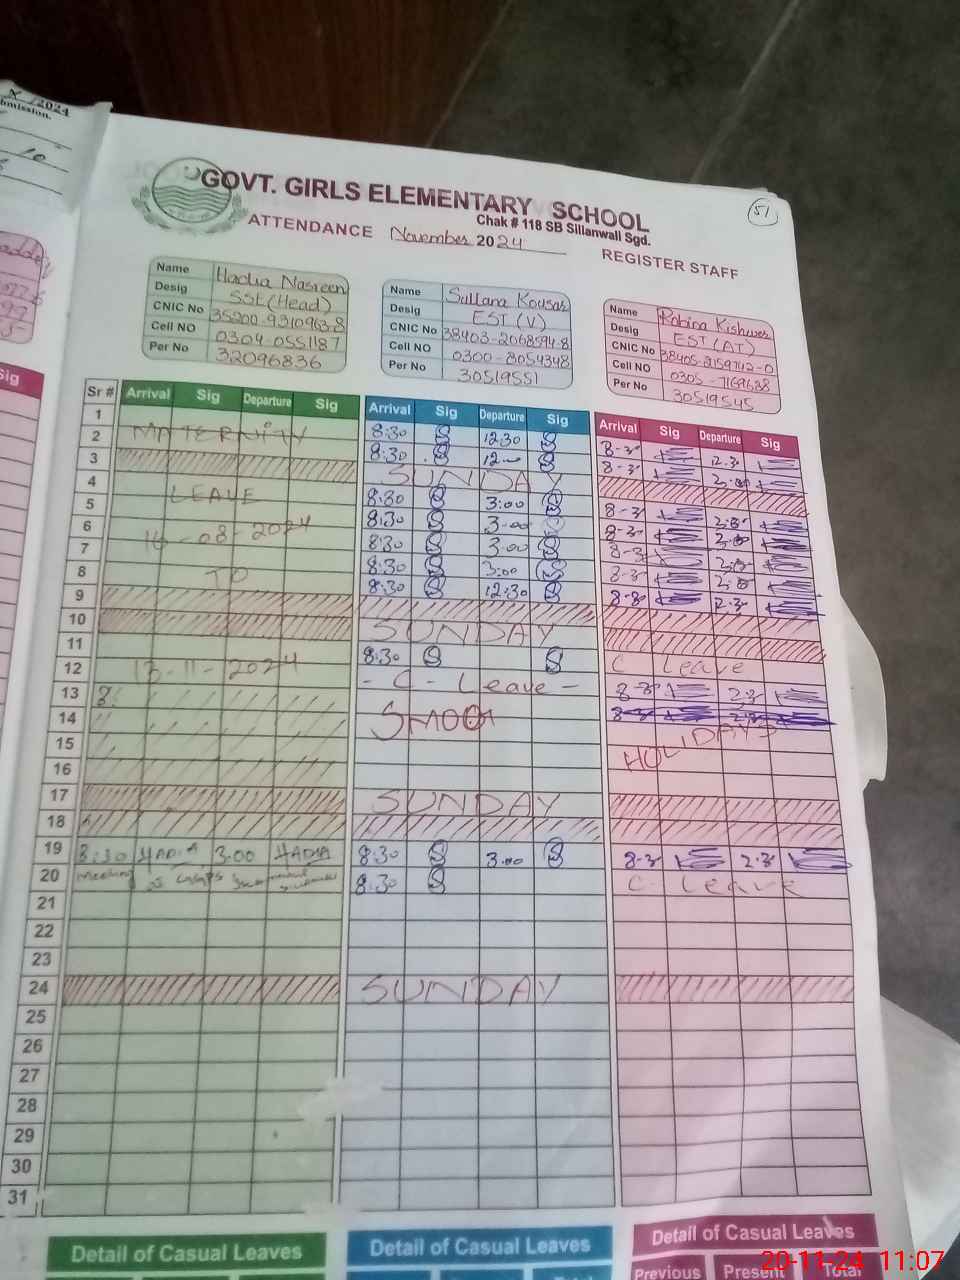 X /2024
bmission.
10
51
GOVT. GIRLS ELEMENTARY SCHOOL
Chak # 118 SB Sillanwali Sgd.
ATTENDANCE November 2024 REGISTER STAFF
Name Hadia Nasreen
Desig SSE (Head)
CNIC No 35200-9310963-8
Cell NO 0304-0551187
Per No 32096836
Name Sultana Kousar
Desig EST (V)
CNIC No 38403-2068594-8
Cell NO 0300-8054348
Per No 30519551
Name Robina Kishwer
Desig EST (AT)
CNIC No 38405-2159712-0
Cell NO 0305-7169638
Per No 30519545
Sig
Sr # Arrival Sig Departure Sig Arrival Sig Departure Sig Arrival Sig Departure Sig
1 8:30 S 12:30 S 8-3 12-3
2 MATERNITY 8:30 S 12 S 8-3
3 SUNDAY
4 LEAVE 8:30 S 3:00 S 8-3 2:3
5 8:30 S 3:00 S 8-3
6 16-08-2024 8:30 S 3:00 S 8-3
7 8:30 S 3:00 S 8-3
8 TO 8:30 S 12:30 S 8-3 2-3
9
10 SUNDAY
11 8:30 S S C Leave
12 13-11-2024 - C - Leave - 8-3 2-3
13 8: SMOG 8-3 2-3
14 HOLIDAYS
15
16
17 SUNDAY
18
19 8:30 HADIA 3:00 HADIA 8:30 S 3:00 S 8-3 2-3
20 meeting 8:30 S C Leave
21
22
23
24 SUNDAY
25
26
27
28
29
30
31
Detail of Casual Leaves Detail of Casual Leaves Detail of Casual Leaves
Previous Present Total
20-11-24 11:07